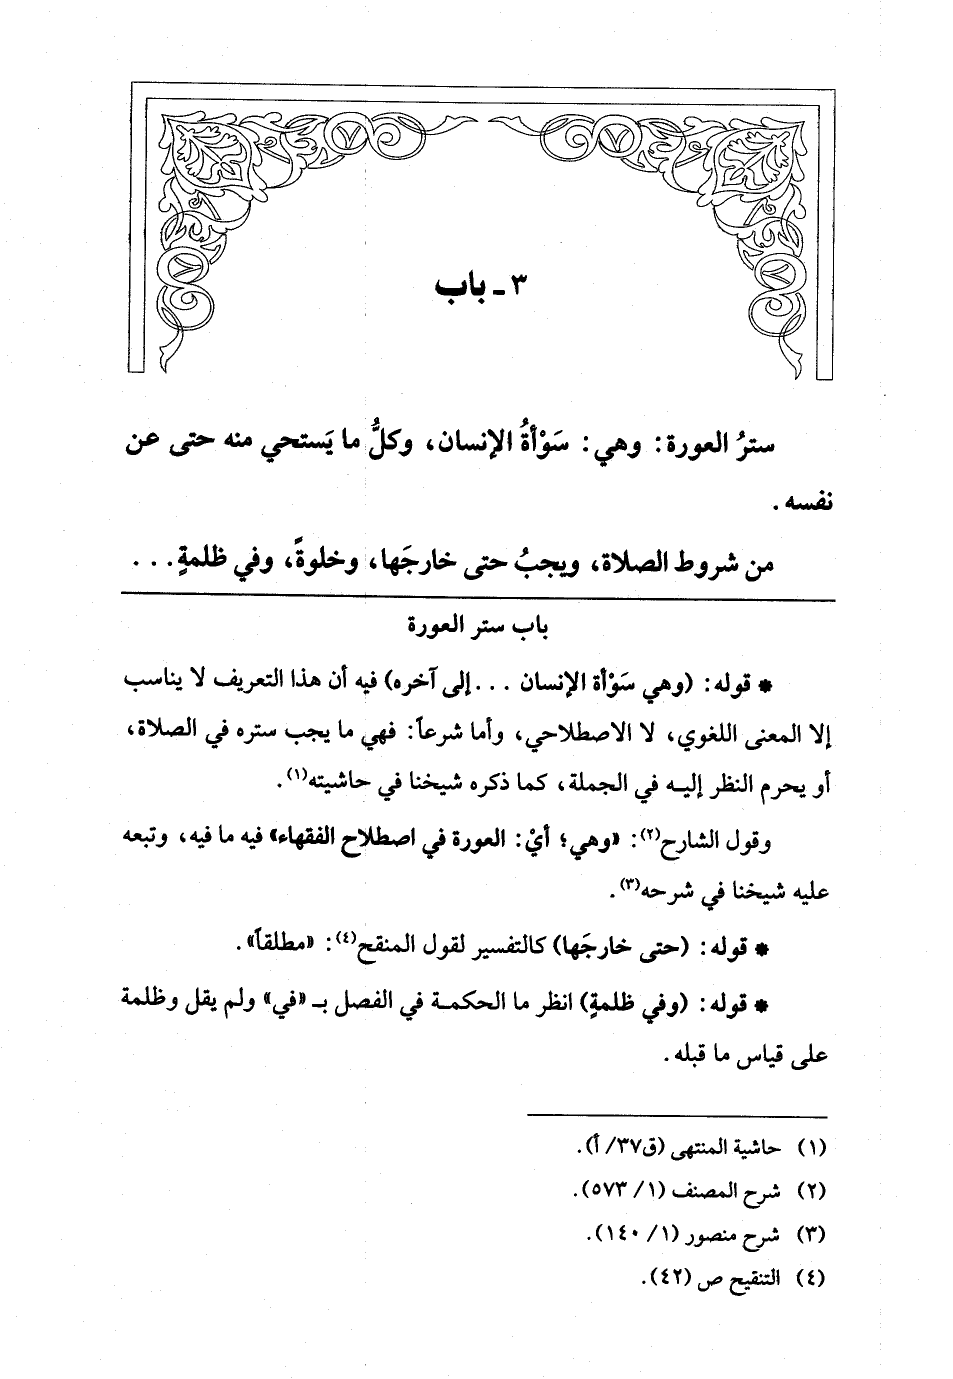 ٣ - باب
سترُ العورة: وهي: سَوْأةُ الإنسان، وكلُّ ما يَستحي منه حتى عن
نفسه.
من شروط الصلاة، ويجبُ حتى خارجَها، وخلوةً، وفي ظلمةٍ...
باب ستر العورة
* قوله: (وهي سَوْأة الإنسان ... إلى آخره) فيه أن هذا التعريف لا يناسب
إلا المعنى اللغوي، لا الاصطلاحي، وأما شرعاً: فهي ما يجب ستره في الصلاة،
أو يحرم النظر إليه في الجملة، كما ذكره شيخنا في حاشيته(١).
وقول الشارح(٢): «وهي؛ أيْ: العورة في اصطلاح الفقهاء» فيه ما فيه، وتبعه
عليه شيخنا في شرحه(٣).
* قوله: (حتى خارجَها) كالتفسير لقول المنقح(٤): «مطلقاً».
* قوله: (وفي ظلمةٍ) انظر ما الحكمة في الفصل بـ «في» ولم يقل وظلمة
على قياس ما قبله.
(١) حاشية المنتهى (ق٣٧/ أ).
(٢) شرح المصنف (١/ ٥٧٣).
(٣) شرح منصور (١/ ١٤٠).
(٤) التنقيح ص (٤٢).